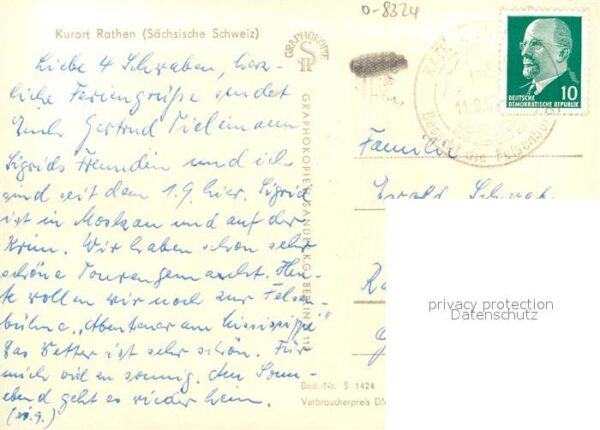 0-8324
Kurort Rathen (Sächsische Schweiz)
Liebe 4 Schwaben, herz-
liche Feriengrüße sendet
Euch Gertrud Tielemann
Sigrids Freundin und ich
sind seit dem 1.9. hier. Sigrid
ist in Moskau und auf der
Krim. Wir haben schon sehr
schöne Touren gemacht. Heu-
te wollen wir noch zur Felsen-
bühne „Abenteuer am Mississippi"
Das Wetter ist sehr schön. Für
mich viel zu sonnig. Am Sonn-
abend geht es wieder heim.
GRAPHOKOPIE
GRAPHOKOPIE H. SANDER KG, BERLIN
Best.-Nr. S 1424
Verbraucherpreis DM
DEUTSCHE
DEMOKRATISCHE REPUBLIK
10
Familie
Ewald Schwab
privacy protection
Datenschutz